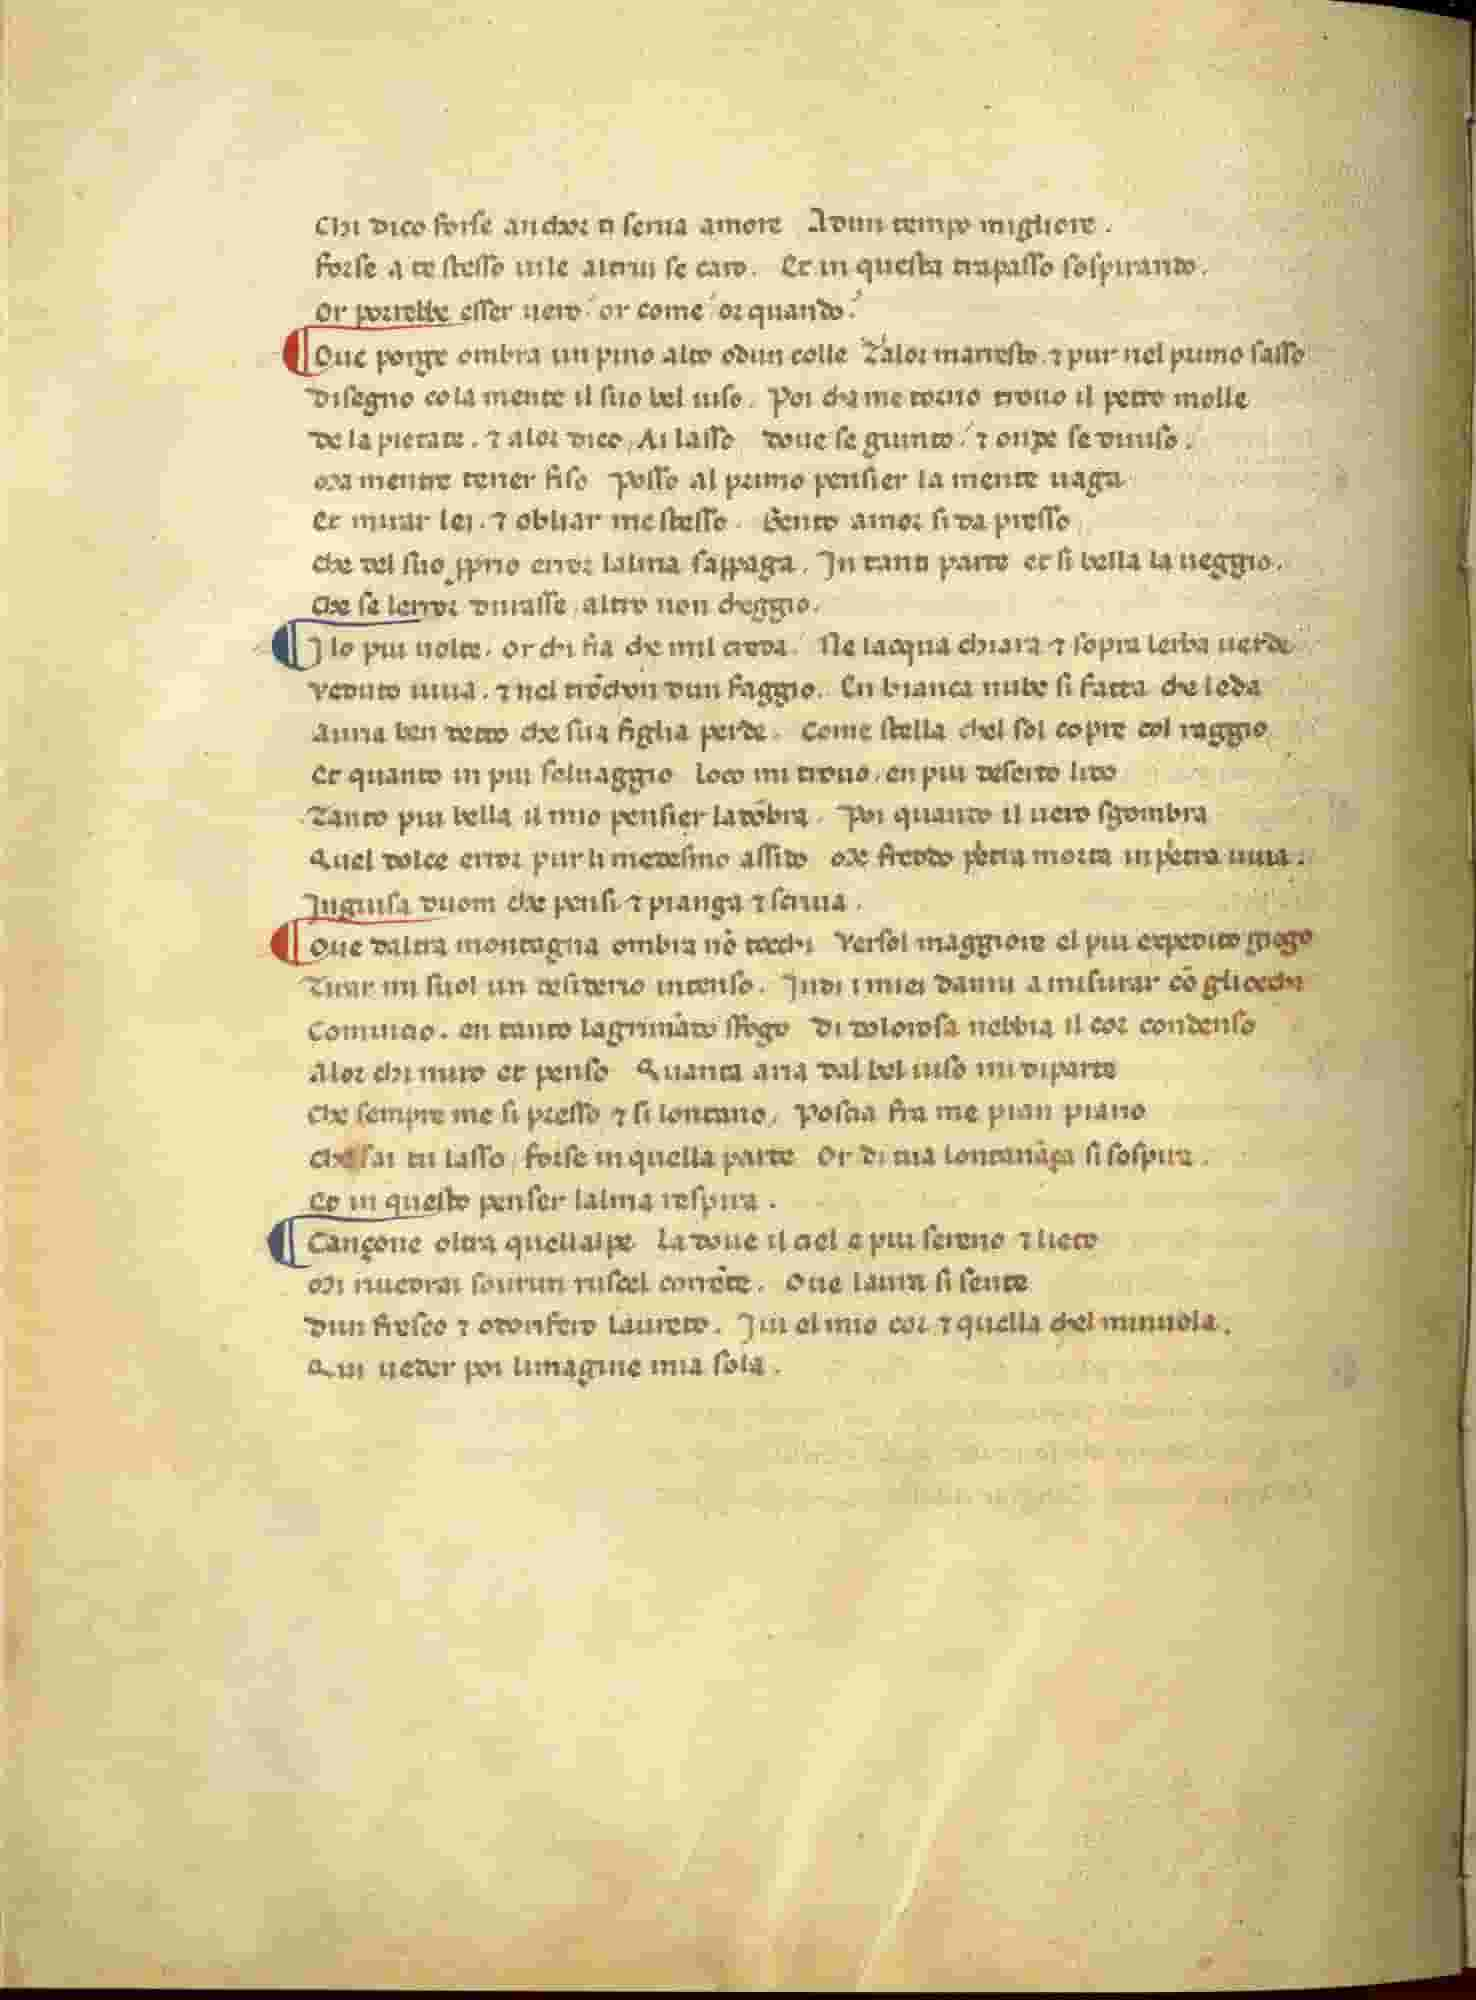 Chi dico forse anchor ti serua amore Adun tempo migliore.
Forse a te stesso uile altrui se caro. Et in questa trapasso sospirando.
Or porrebbe esser uero or come or quando.
Oue porge ombra un pino alto odun colle Talor marresto. ⁊ pur nel primo sasso
Disegno co la mente il suo bel uiso. Poi cha me torno trouo il petto molle
De la pietate. ⁊ alor dico. Ai lasso doue se giunto ⁊ onde se diuiso.
Ma mentre tener fiso Posso al primo pensier la mente uaga
Et mirar lei. ⁊ obliar me stesso. Sento amor si da presso
Che del suo proprio error lalma sappaga. In tanti parte et si bella la ueggio.
Che se lerror durasse altro non cheggio.
I lo piu uolte. or chi fia che mil creda. Ne lacqua chiara ⁊ sopra lerba uerde
Veduto uiua. ⁊ nel trōchon dun faggio. En bianca nube si fatta che leda
Auria ben detto che sua figlia perde. Come stella chel sol copre col raggio
Et quanto in piu seluaggio Loco mi trouo. en piu deserto lito
Tanto piu bella il mio pensier ladōbra. Poi quanto il uero sgombra
Quel dolce error pur li medesmo assido Me freddo petra morta in petra uiua.
Inguisa duom che pensi ⁊ pianga ⁊ scriua.
Oue daltra montagna ombra nō tocchi Versol maggiore el piu expedito giogo
Tirar mi suol un desiderio intenso. Indi i miei danni a misurar cō gliocchi
Comincio. en tanto lagrimādo sfogo Di dolorosa nebbia il cor condenso
Alor chi miro et penso Quanta aria dal bel uiso mi diparte
Che sempre me si presso ⁊ si lontano. Poscia fra me pian piano
Che sai tu lasso forse in quella parte Or di tua lontanāça si sospira.
Et in questo penser lalma respira.
Cançone oltra quellalpe La doue il ciel e piu sereno ⁊ lieto
Mi riuedrai sourun ruscel corrēte. Oue laura si sente
Dun fresco ⁊ odorifero laureto. Iui el mio cor ⁊ quella chel minuola.
Qui ueder poi limagine mia sola.